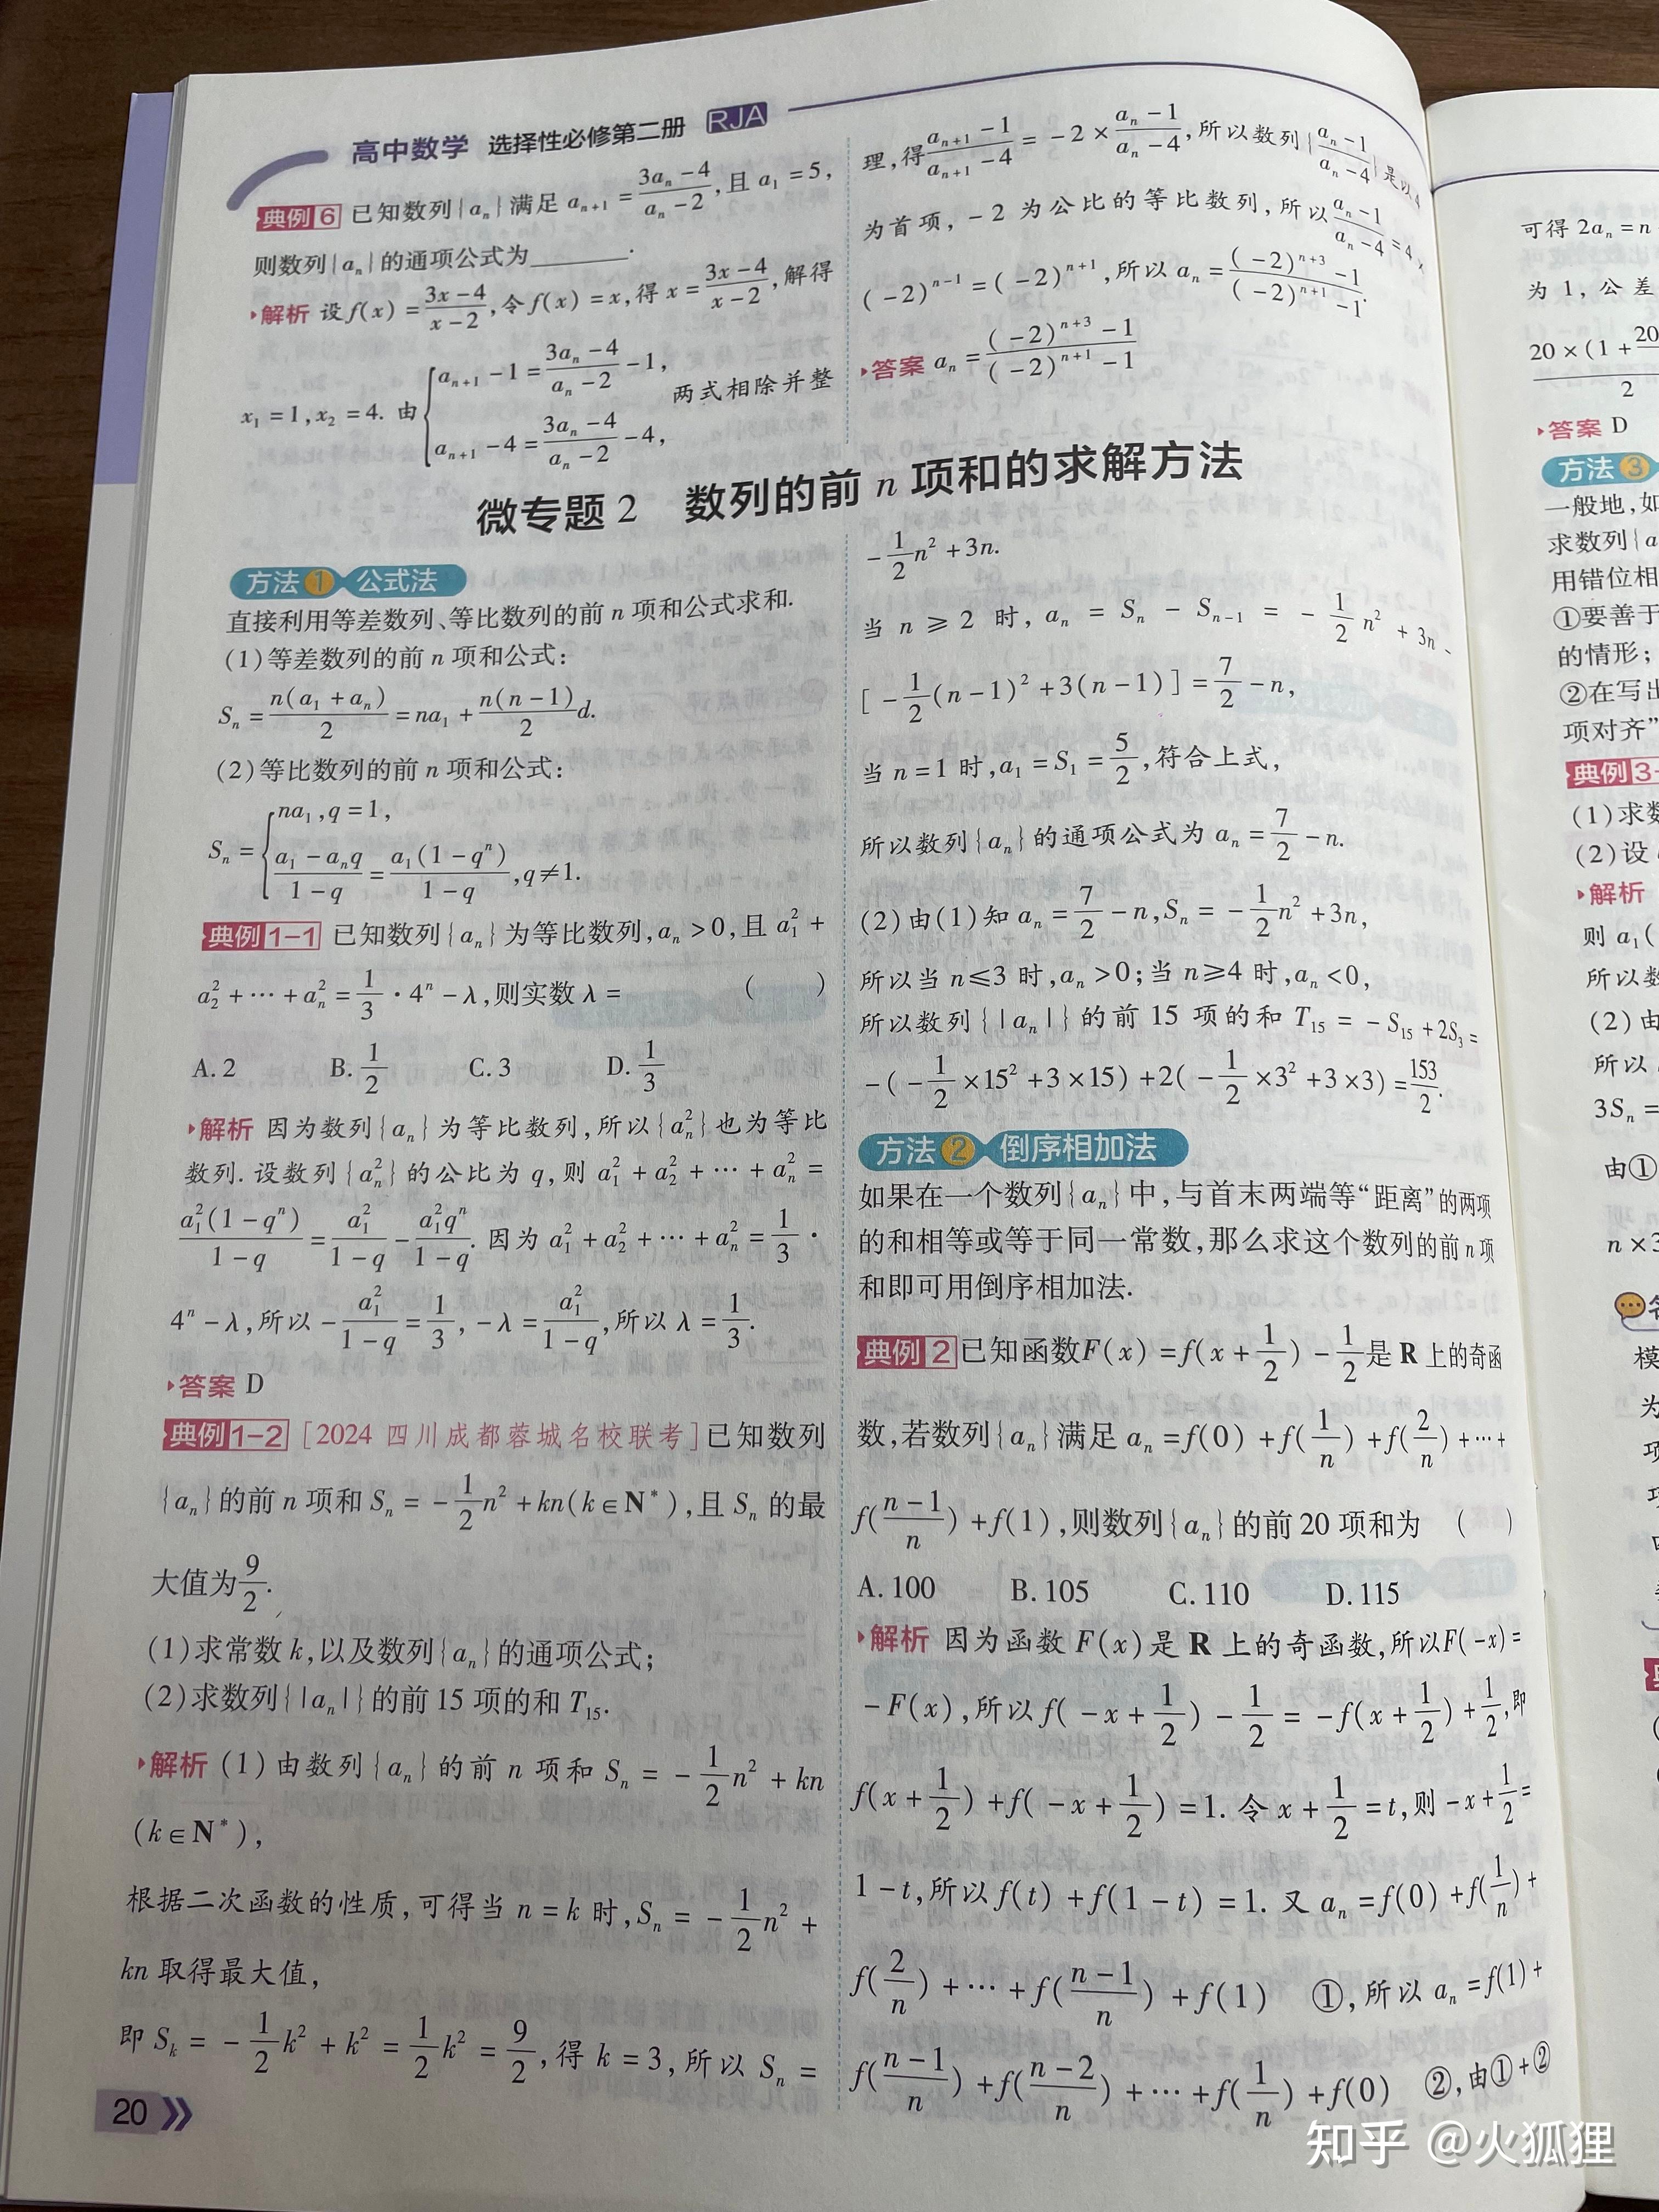 高中数学 选择性必修第二册 RJA
典例6 已知数列{aₙ}满足 aₙ₊₁ = (3aₙ-4)/(aₙ-2), 且 a₁=5,
则数列{aₙ}的通项公式为________.
解析 设 f(x) = (3x-4)/(x-2), 令 f(x)=x, 得 x = (3x-4)/(x-2), 解得
x₁=1, x₂=4. 由 { aₙ₊₁-1 = (3aₙ-4)/(aₙ-2) -1, aₙ₊₁-4 = (3aₙ-4)/(aₙ-2) -4, 两式相除并整
理, 得 (aₙ₊₁-1)/(aₙ₊₁-4) = -2 × (aₙ-1)/(aₙ-4), 所以数列{(aₙ-1)/(aₙ-4)}是以4
为首项, -2 为公比的等比数列, 所以 (aₙ-1)/(aₙ-4) = 4×
(-2)ⁿ⁻¹ = (-2)ⁿ⁺¹, 所以 aₙ = ((-2)ⁿ⁺³-1)/((-2)ⁿ⁺¹-1).
答案 aₙ = ((-2)ⁿ⁺³-1)/((-2)ⁿ⁺¹-1)
微专题2 数列的前 n 项和的求解方法
方法1 公式法
直接利用等差数列、等比数列的前 n 项和公式求和.
(1)等差数列的前 n 项和公式:
Sₙ = n(a₁+aₙ)/2 = na₁ + n(n-1)/2 d.
(2)等比数列的前 n 项和公式:
Sₙ = { na₁, q=1, (a₁-aₙq)/(1-q) = a₁(1-qⁿ)/(1-q), q≠1.
典例1-1 已知数列{aₙ}为等比数列, aₙ>0, 且 a₁²+
a₂²+⋯+aₙ² = 1/3·4ⁿ-λ, 则实数 λ= ( )
A. 2 B. 1/2 C. 3 D. 1/3
解析 因为数列{aₙ}为等比数列, 所以{aₙ²}也为等比
数列. 设数列{aₙ²}的公比为 q, 则 a₁²+a₂²+⋯+aₙ² =
a₁²(1-qⁿ)/(1-q) = a₁²/(1-q) - a₁²qⁿ/(1-q). 因为 a₁²+a₂²+⋯+aₙ² = 1/3·
4ⁿ-λ, 所以 -a₁²/(1-q) = 1/3, -λ = a₁²/(1-q), 所以 λ = 1/3.
答案 D
典例1-2 [2024 四川成都蓉城名校联考]已知数列
{aₙ}的前 n 项和 Sₙ = -1/2 n²+kn(k∈N*), 且 Sₙ 的最
大值为 9/2.
(1)求常数 k, 以及数列{aₙ}的通项公式;
(2)求数列{|aₙ|}的前 15 项的和 T₁₅.
解析 (1)由数列{aₙ}的前 n 项和 Sₙ = -1/2 n²+kn
(k∈N*),
根据二次函数的性质, 可得当 n=k 时, Sₙ = -1/2 n²+
kn 取得最大值,
即 Sₖ = -1/2 k²+k² = 1/2 k² = 9/2, 得 k=3, 所以 Sₙ =
20
-1/2 n²+3n.
当 n≥2 时, aₙ = Sₙ - Sₙ₋₁ = -1/2 n²+3n-
[-1/2(n-1)²+3(n-1)] = 7/2-n,
当 n=1 时, a₁=S₁=5/2, 符合上式,
所以数列{aₙ}的通项公式为 aₙ = 7/2-n.
(2)由(1)知 aₙ = 7/2-n, Sₙ = -1/2 n²+3n,
所以当 n≤3 时, aₙ>0; 当 n≥4 时, aₙ<0,
所以数列{|aₙ|}的前 15 项的和 T₁₅ = -S₁₅+2S₃ =
-(-1/2×15²+3×15)+2(-1/2×3²+3×3) = 153/2.
方法2 倒序相加法
如果在一个数列{aₙ}中, 与首末两端等“距离”的两项
的和相等或等于同一常数, 那么求这个数列的前 n 项
和即可用倒序相加法.
典例2 已知函数F(x)=f(x+1/2)-1/2是 R 上的奇函
数, 若数列{aₙ}满足 aₙ=f(0)+f(1/n)+f(2/n)+⋯+
f((n-1)/n)+f(1), 则数列{aₙ}的前 20 项和为 ( )
A. 100 B. 105 C. 110 D. 115
解析 因为函数 F(x)是 R 上的奇函数, 所以F(-x)=
-F(x), 所以 f(-x+1/2)-1/2 = -f(x+1/2)+1/2, 即
f(x+1/2)+f(-x+1/2)=1. 令 x+1/2=t, 则 -x+1/2=
1-t, 所以 f(t)+f(1-t)=1. 又 aₙ=f(0)+f(1/n)+
f(2/n)+⋯+f((n-1)/n)+f(1) ①, 所以 aₙ=f(1)+
f((n-1)/n)+f((n-2)/n)+⋯+f(1/n)+f(0) ②, 由①+②
可得 2aₙ=n
为 1, 公差
20×(1+20
2
答案 D
方法3
一般地, 如
求数列{a
用错位相
①要善于
的情形;
②在写出
项对齐”
典例3-
(1)求数
(2)设
解析
则 a₁(
所以数
(2)由
所以
3Sₙ=
由①
n×3
知乎 @火狐狸